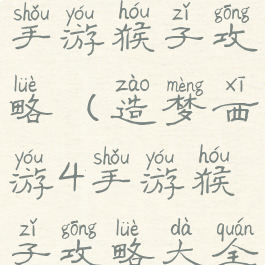 shǒu yóu hóu zǐ gōng
手游猴子攻
lüè zào mèng xī
略(造梦西
yóu shǒu yóu hóu
游4手游猴
zǐ gōng lüè dà quán
子攻略大全